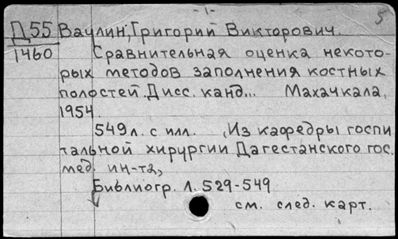 -1- 5
Д55 Ваулин, Григорий Викторович.
1460 Сравнительная оценка некото-
рых методов заполнения костных
полостей. Дисс. канд... Махачкала,
1954.
549 л. с илл. (Из кафедры госпи
тальной хирургии Дагестанского гос.
мед. ин-та)
Библиогр. л. 529-549
см. след. карт.